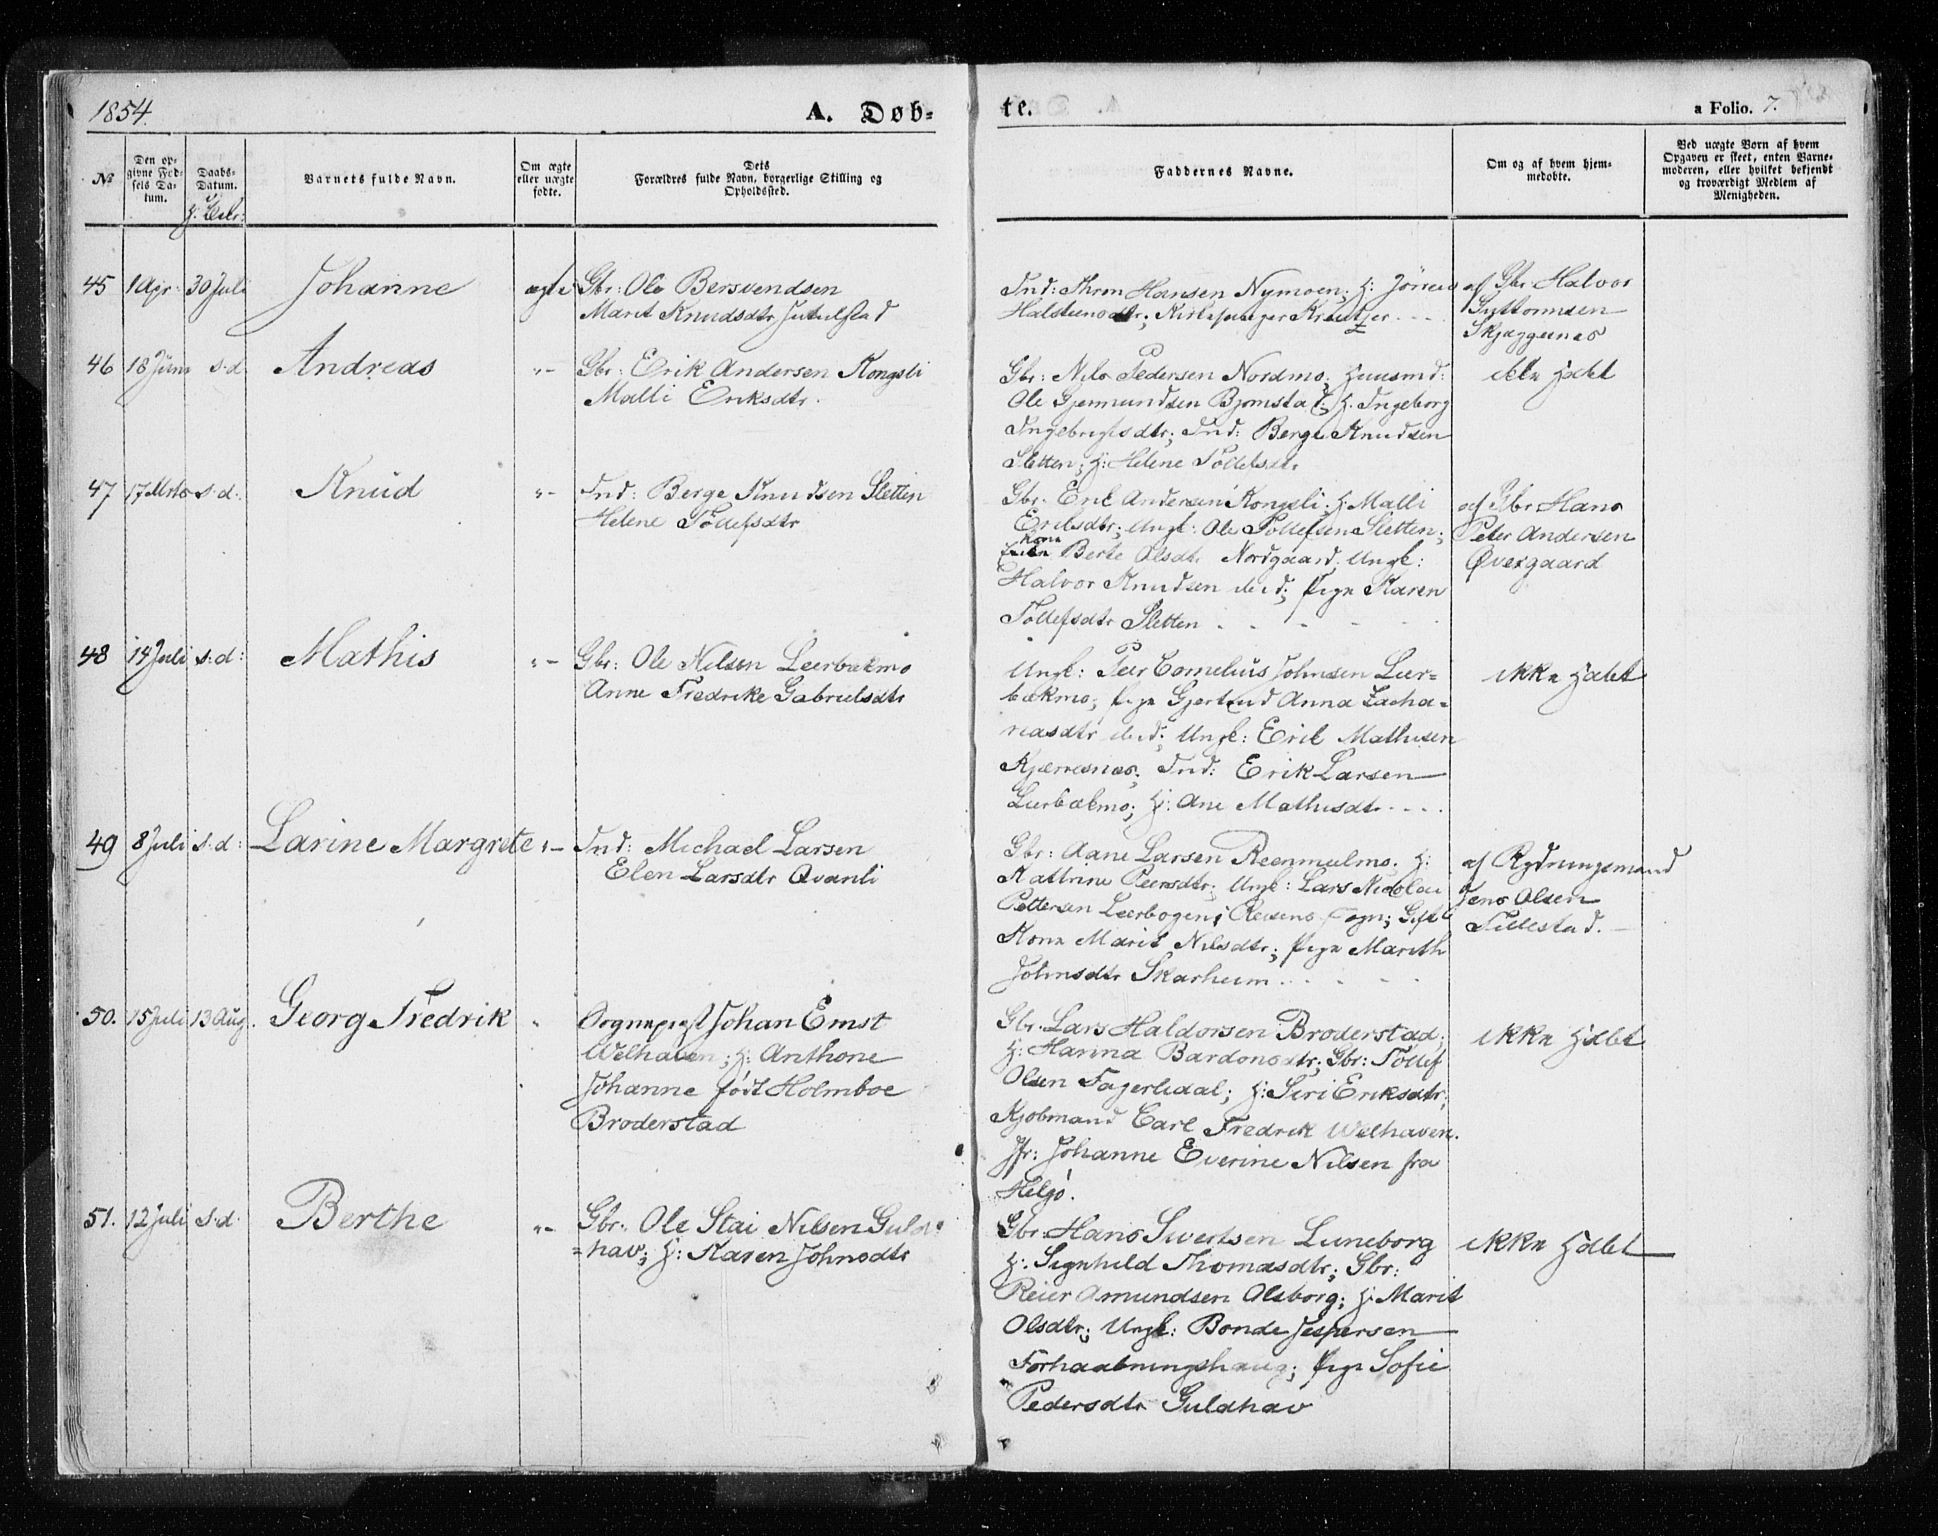 1854.
A. Døb-
te.
a Folio. 7.
№
Den op-
givne Fød-
sels Da-
tum.
Daabs-
Datum.
Barnets fulde Navn.
Om ægte
eller uægte
fødte.
Dets
Forældres fulde Navn, borgerlige Stilling og
Opholdssted.
Faddernes Navne.
Om og af hvem hjem-
medøbte.
Ved uægte Børn af hvem
Opgaven er skeet, enten Barne-
moderen, eller hvilket bekjendt
og troværdigt Medlem af
Menigheden.
45 1 Apr 30 Juli Johanne ægte Gbr: Ole Bersvendsen
Marit Knudsdtr Jutulstad
Ind: Thron Hansen Nymoen; H:
Halsteensdtr; Kirkesanger Kreutzer
af Gbr Halvor
Guttormsen
Skjæggesnes
46 18 Juni s.d. Andreas "- Gbr: Erik Andersen Kongsli
Malli Eriksdtr.
Gbr: Nils Pedersen Nordmo; Huusmd:
Ole Gjermundsen Bjornstad; H. Ingeborg
Ingebrigtsdtr; Ind: Berge Knudsen
Sletten; H: Helene Tollefsdtr
ikke Hdbt
47 17 Mrts s.d. Knud "- Ind: Berge Knudsen Sletten
Helene Tollefsdtr
Gbr. Erik Andersen Kongsli; H: Malli
Eriksdtr; Ungk: Ole Tollefsen Sletten;
Kone
Berte Olsdtr Nordgaard; Ungk:
Halvor Knudsen ibid; Pige Karen
Tollefsdtr Sletten
af Gbr Hans
Peter Andersen
Øvergaard
48 14 Juli s.d: Mathis "- Gbr: Ole Nilsen Leerbækmo
Anne Fredrike Gabrielsdtr
Ungk: Peer Cornelius Johnsen Leer-
bækmo; Pige Gjertrud Anna Zacha-
riasdtr ibid; Ungk: Erik Mathisen
Kjærresnes; Ind: Erik Larsen
Leerbækmo; H: Ane Mathisdtr
ikke Hdbt
49 8 Juli s.d: Larine Margrete "- Ind: Michael Larsen
Elen Larsdtr Qvanli
Gbr: Aane Larsen Reenmælmo; H:
Kathrine Peersdtr; Ungk: Lars Nicolai
Pettersen Leerbogen; Reisens Sogn; Gift
Kone Marit Nilsdtr; Pige Marith
Johnsdtr Skarheim
af Rydningsmand
Jens Olsen
Tillestad.
50. 15 Juli 13 Aug. Georg Fredrik " Sognepræst Johan Ernst
Welhaven; H: Anthone
Johanne født Holmboe
Broderstad
Gbr. Lars Haldorsen Broderstad;
H: Hanna Bardonsdtr; Gbr: Tollef
Olsen Fagerlidal; H: Siri Eriksdtr;
Kjøbmand Carl Fredrik Welhaven.
Jfr: Johanne Everine Nilsen fra
Helgø.
ikke Hdbt
51. 12 Juli s.d. Berthe "- Gbr. Ole Stai Nilsen Guld-
=hav; H: Karen Johnsdtr
Gbr. Hans Sivertsen Luneborg
H: Signhild Thomasdtr; Gbr:
Reier Amundsen Olsborg; H: Marit
Olsdtr; Ungk: Bonde Jespersen
Forhaabningshaug; Pige Sofie
Pedersdtr Guldhav
ikke Hdbt